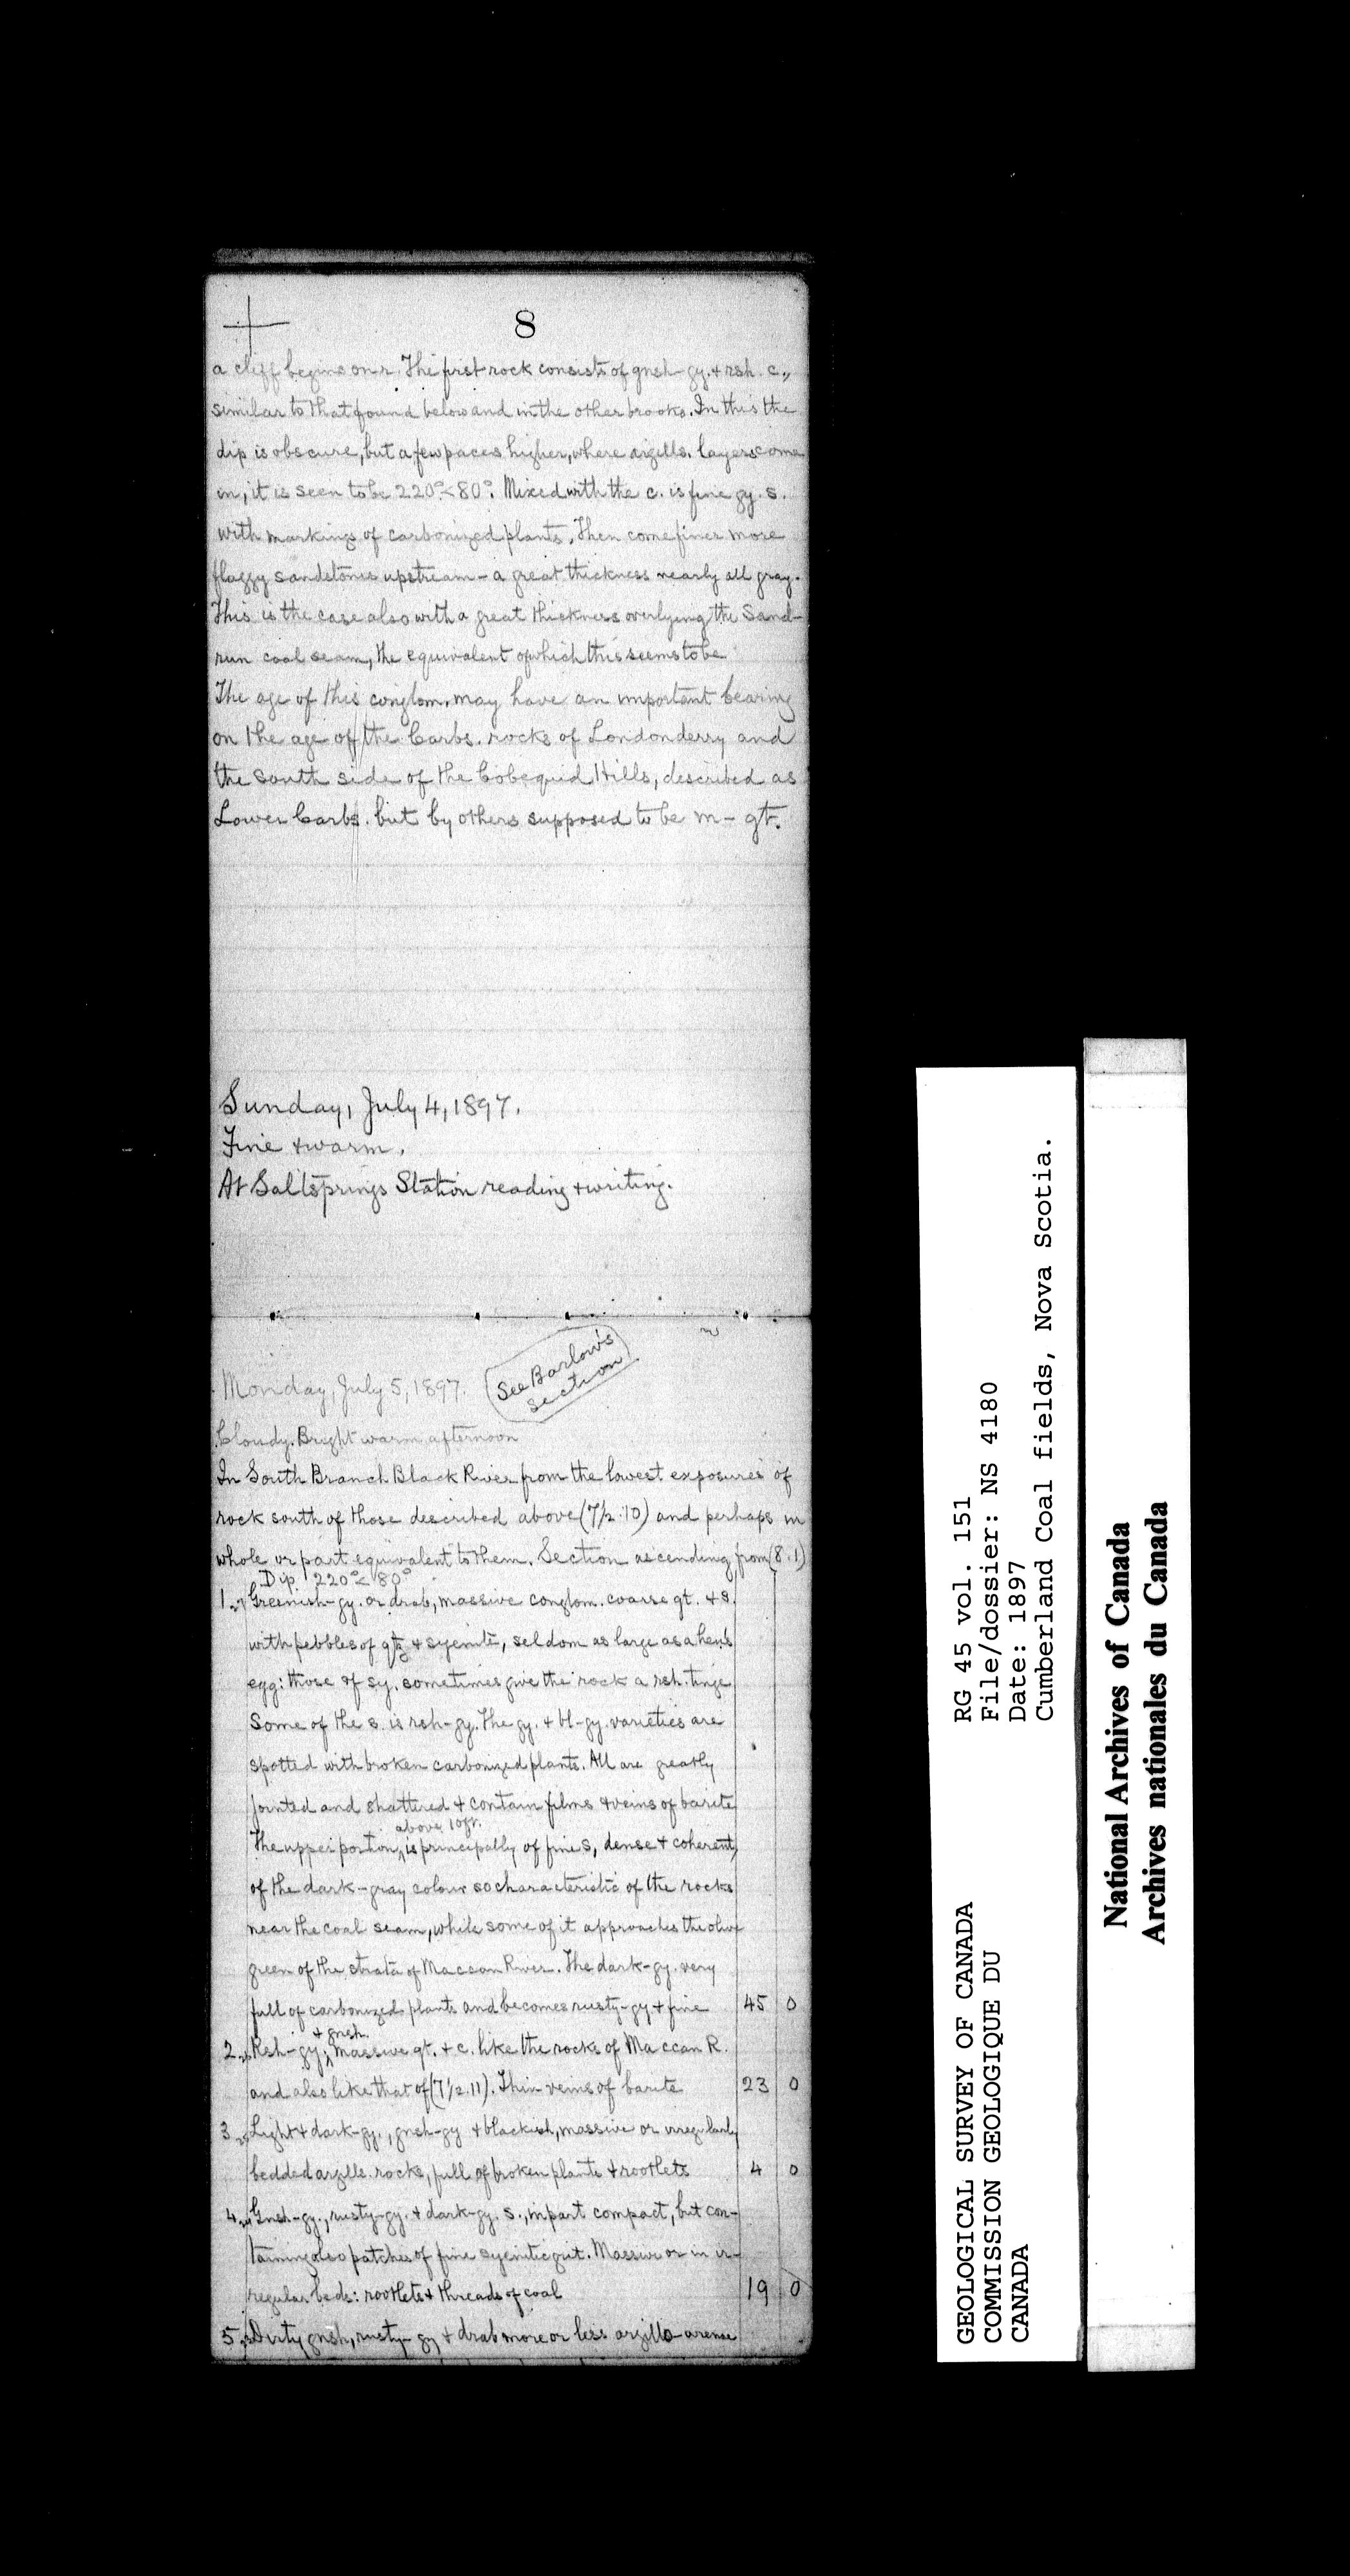 8
a cliff begins on r. The first rock consists of gnsh-gy. & rsh. c.,
similar to that found below and in the other brooks. In this the
dip is obscure, but a few paces higher, where argills. layers come
in, it is seen to be 220°<80°. Mixed with the c. is fine gy. s.
with markings of carbonized plants. Then come finer more
flaggy sandstones upstream - a great thickness nearly all gray.
This is the case also with a great thickness overlying the Sand-
run coal seam, the equivalent of which this seems to be
The age of this conglom. may have an important bearing
on the age of the Carbs. rocks of Londonderry and
the south side of the Cobequid Hills, described as
Lower Carbs. but by others supposed to be m-gt.
Sunday, July 4, 1897.
Fine & warm.
At Saltsprings Station reading & writing.
See Barlow's
section
Monday, July 5, 1897.
Cloudy. Bright warm afternoon
In South Branch Black River from the lowest exposures of
rock south of those described above (7½.10) and perhaps in
whole or part equivalent to them. Section ascending from (8.1)
Dip 220°<80°
1 Greenish-gy. or drab, massive conglom. coarse gt. & s.
with pebbles of qtz & syenite, seldom as large as a hen's
egg: those of sy. sometimes give the rock a rsh. tinge
Some of the s. is rsh-gy. The gy. & bl-gy. varieties are
spotted with broken carbonized plants. All are greatly
jointed and shattered & contain films & veins of barite
above 10 ft.
The upper portion, is principally of fine s, dense & coherent,
of the dark-gray colour so characteristic of the rocks
near the coal seam, while some of it approaches the olive
green of the strata of Maccan River. The dark-gy. very
full of carbonized plants and becomes rusty-gy & fine 45 0
& gnsh.
2 Rsh-gy, massive gt. & c. like the rocks of Maccan R.
and also like that of (7½.11). Thin veins of barite 23 0
3 Light & dark-gy., gnsh-gy & blackish, massive or irregularly
bedded argills. rocks, full of broken plants & rootlets 4 0
4 Gnsh-gy., rusty-gy. & dark-gy. s., in part compact, but con-
taining also patches of fine syenitic grit. Massive or in ir-
regular beds: rootlets & threads of coal 19 0
5 Dirty gnsh, rusty-gy & drab more or less argillo-arenac
GEOLOGICAL SURVEY OF CANADA
COMMISSION GEOLOGIQUE DU
CANADA
RG 45 vol. 151
File/dossier: NS 4180
Date: 1897
Cumberland Coal fields, Nova Scotia.
National Archives of Canada
Archives nationales du Canada